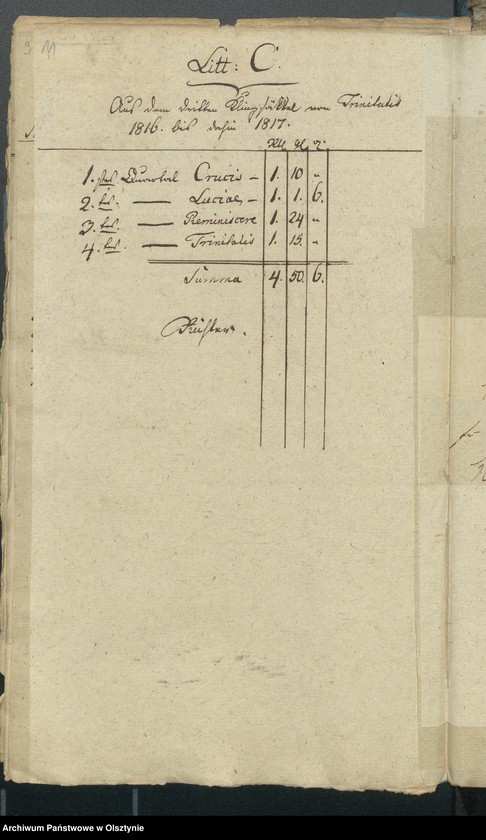 9 11
Litt: C.
Aus dem dritten Klingsäckel von Trinitatis
1816. bis dahin 1817.
1. stes Quartal Crucis – 1. 10 "
2. tes. — Luciae – 1. 1. 6.
3. tes — Reminiscere 1. 24 "
4. tes — Trinitatis 1. 15. "
Summa 4. 50. 6.
Archiwum Państwowe w Olsztynie